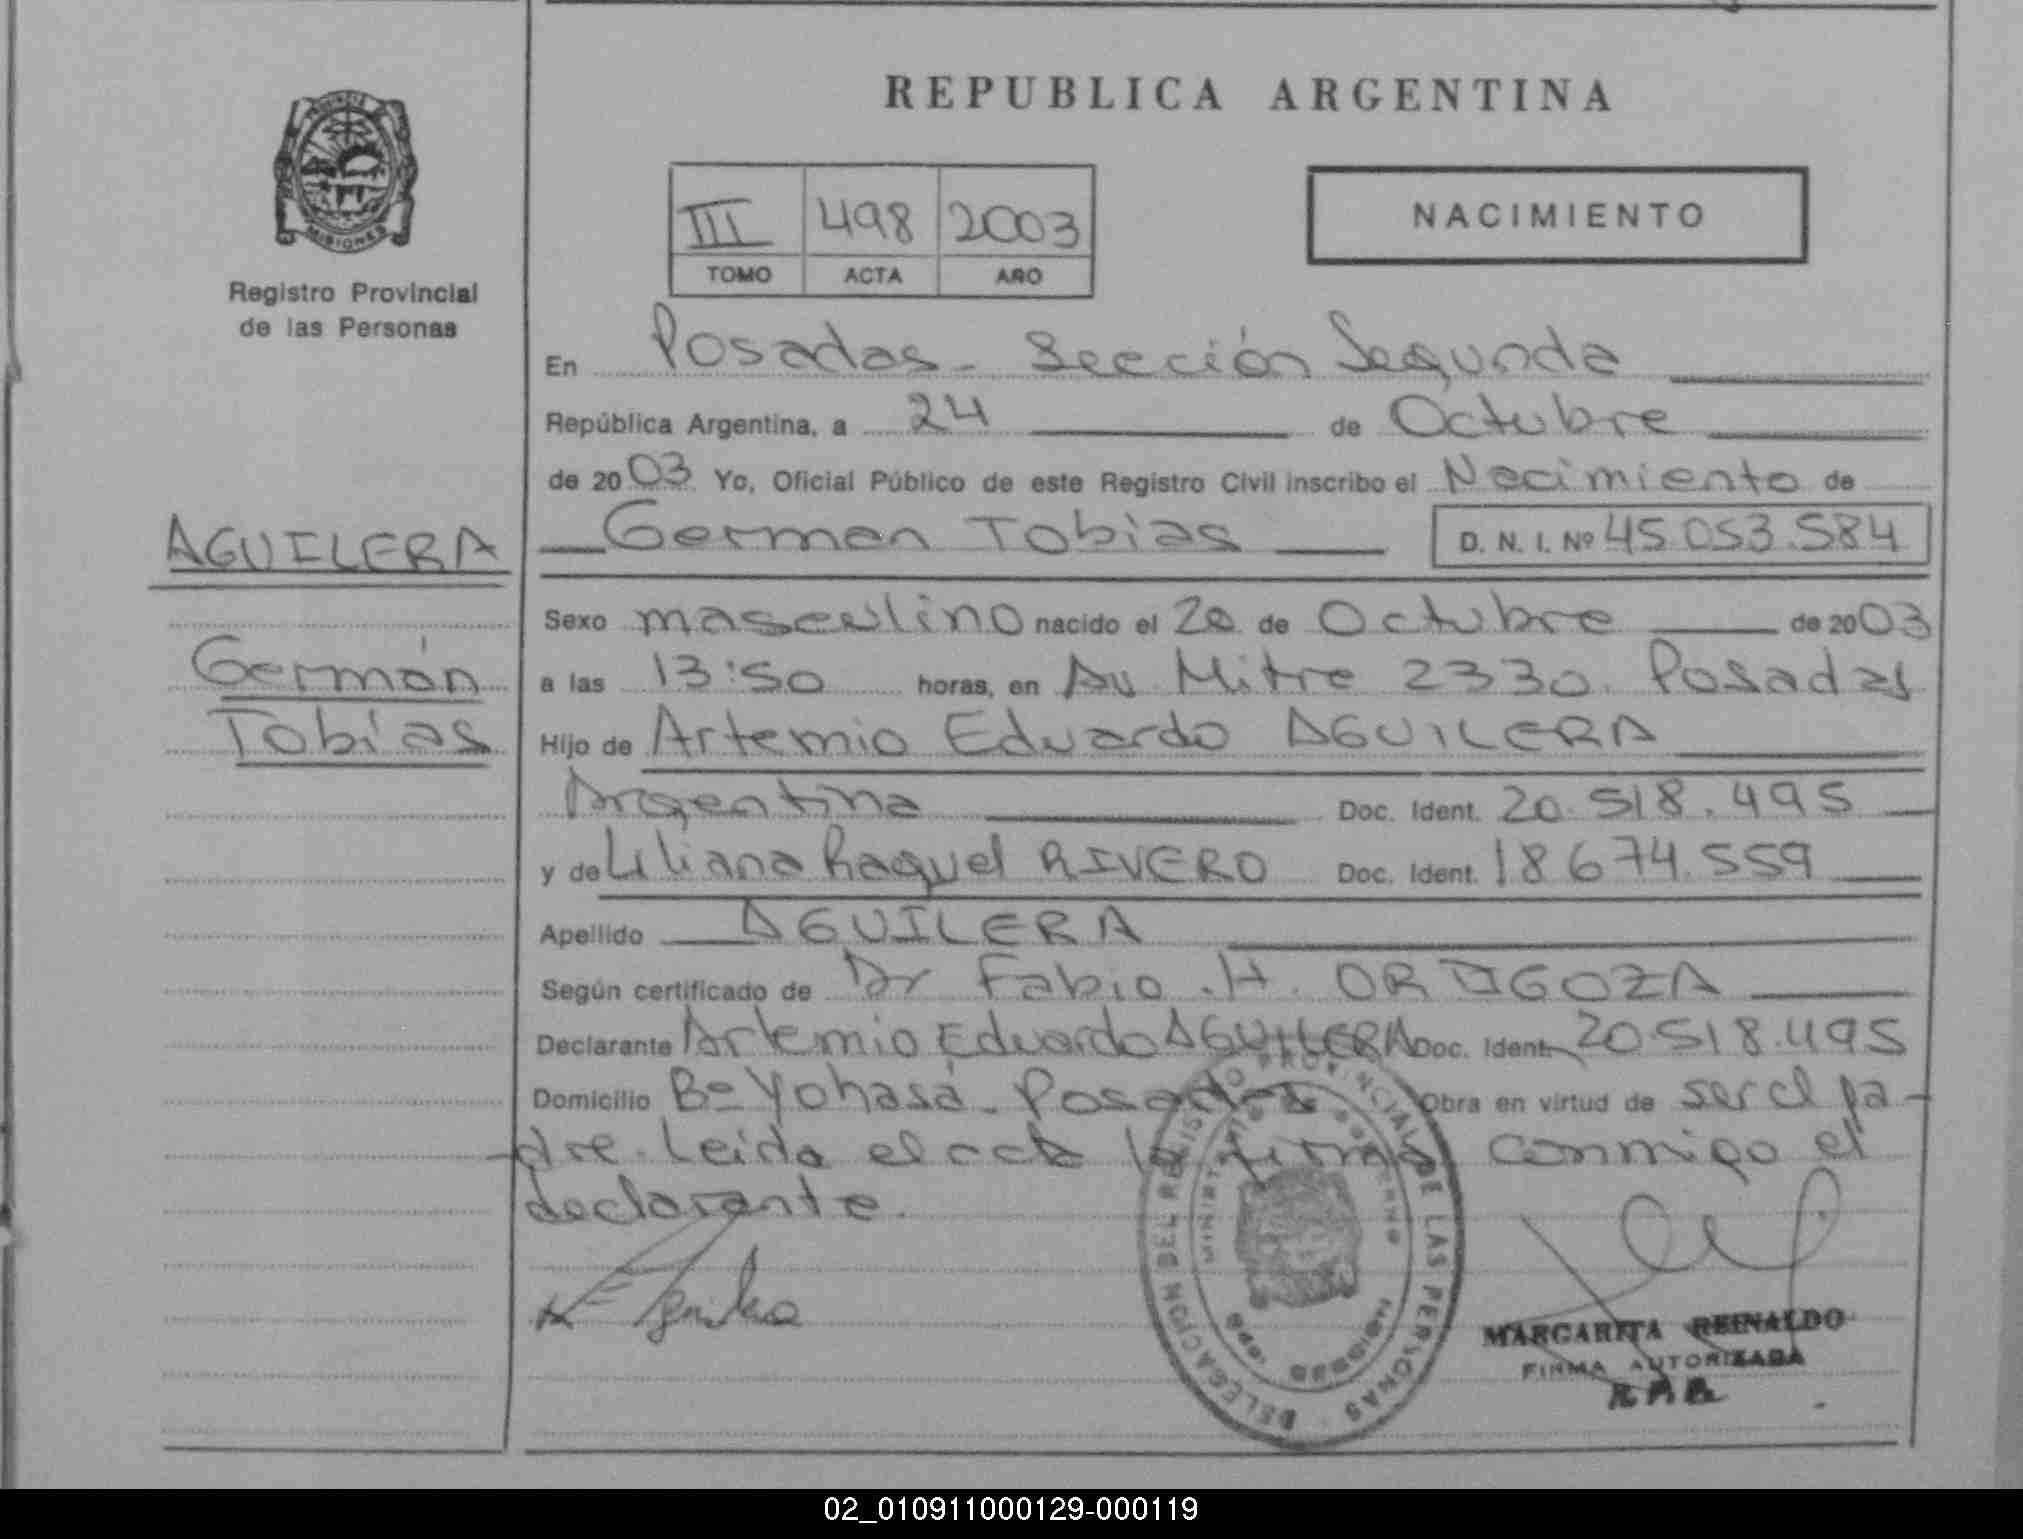 REPUBLICA ARGENTINA
MISIONES
Registro Provincial
de las Personas
NACIMIENTO
III 498 2003
TOMO ACTA AÑO
En Posadas - Sección Segunda
República Argentina, a 24 de Octubre
de 2003 Yo, Oficial Público de este Registro Civil inscribo el Nacimiento de
AGUILERA
German Tobias D. N. I. Nº 45.053.584
Sexo masculino nacido el 20 de Octubre de 2003
Germán
a las 13:50 horas, en Av. Mitre 2330. Posadas
Tobías
Hijo de Artemio Eduardo AGUILERA
Argentina Doc. Ident. 20.518.495
y de Liliana Raquel RIVERO Doc. Ident. 18674.559
Apellido AGUILERA
Según certificado de Dr Fabio .H.
Declarante Artemio Eduardo AGUILERA Doc. Ident. 20.518.495
Domicilio Bº Yohasá - Posadas Obra en virtud de ser el pa-
dre. Leida el acta la firma conmigo el
declarante.
DELEGACION DEL REGISTRO PROVINCIAL DE LAS PERSONAS
MINISTERIO DE GOBIERNO
MARGARITA REINALDO
FIRMA AUTORIZADA
02_010911000129-000119